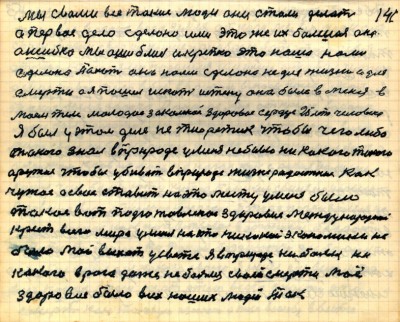 мы с вами все такие люди они стали делать 145
а первое дело сделано ими это же их болезня а
ошибка мы ошиблись и крепко это наша нами
сделана она нами сделана не для жизни а для
смерти а я пошел искать истину она была в меня в
моем теле молодое закалкой здоровое сердце 25 лет человека
Я был у этом деле не теоретик чтобы чего либо
такого знал в природе у меня не было никакого такого
оружия чтобы убивать в природе жизнерадостная как
чужая ставить на это место у меня было
такое вот подготовленное здоровье международной
крест всего мира у меня на это никакой экономики не
было мой выход у света Я в природе ни
какого врага даже не боялся своей смерти моё
здоровье было в их наших людей Так